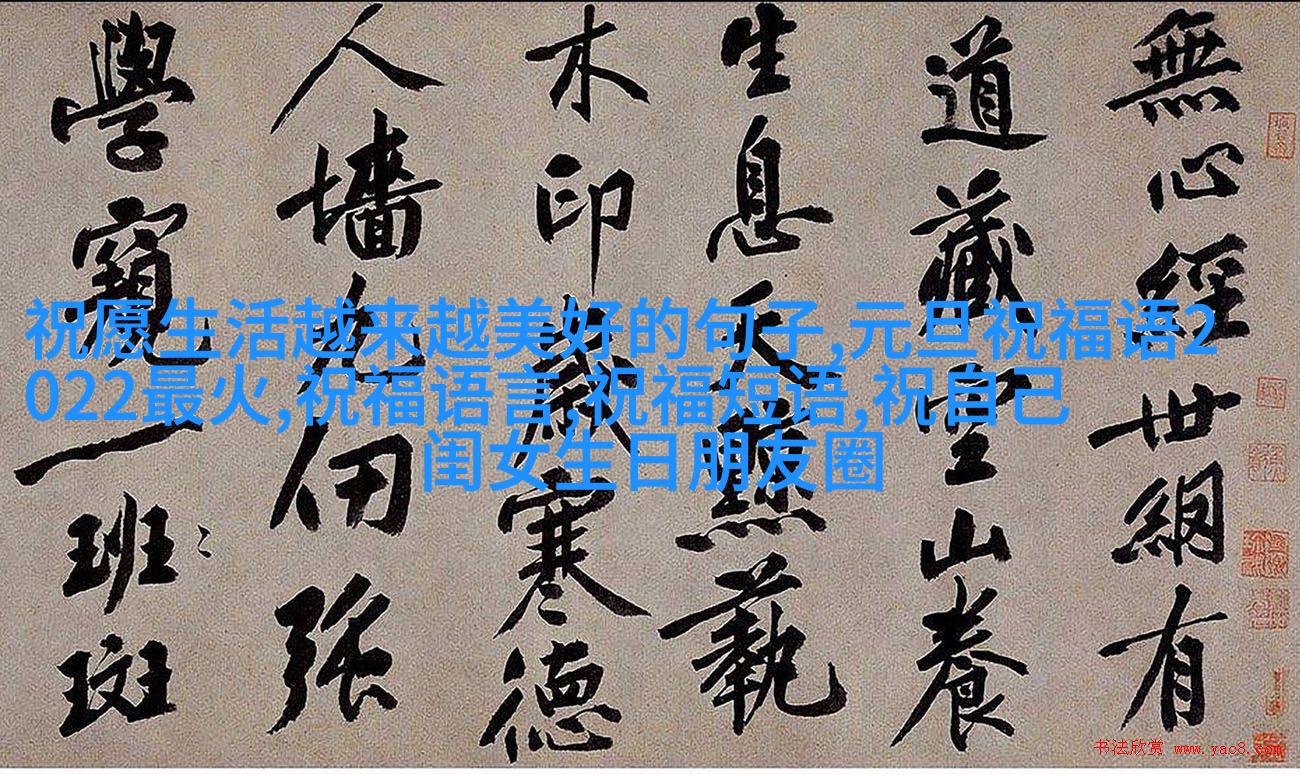 無心經世網有
道藏丘山養
生息天黥藝
木印歲寒德
人墻九仞強
學窺一班斑
祝愿生活越来越美好的句子,元旦祝福语2
022最火,祝福语言,祝福短语,祝自己
闺女生日朋友圈
书法欣赏 www.yac8.com